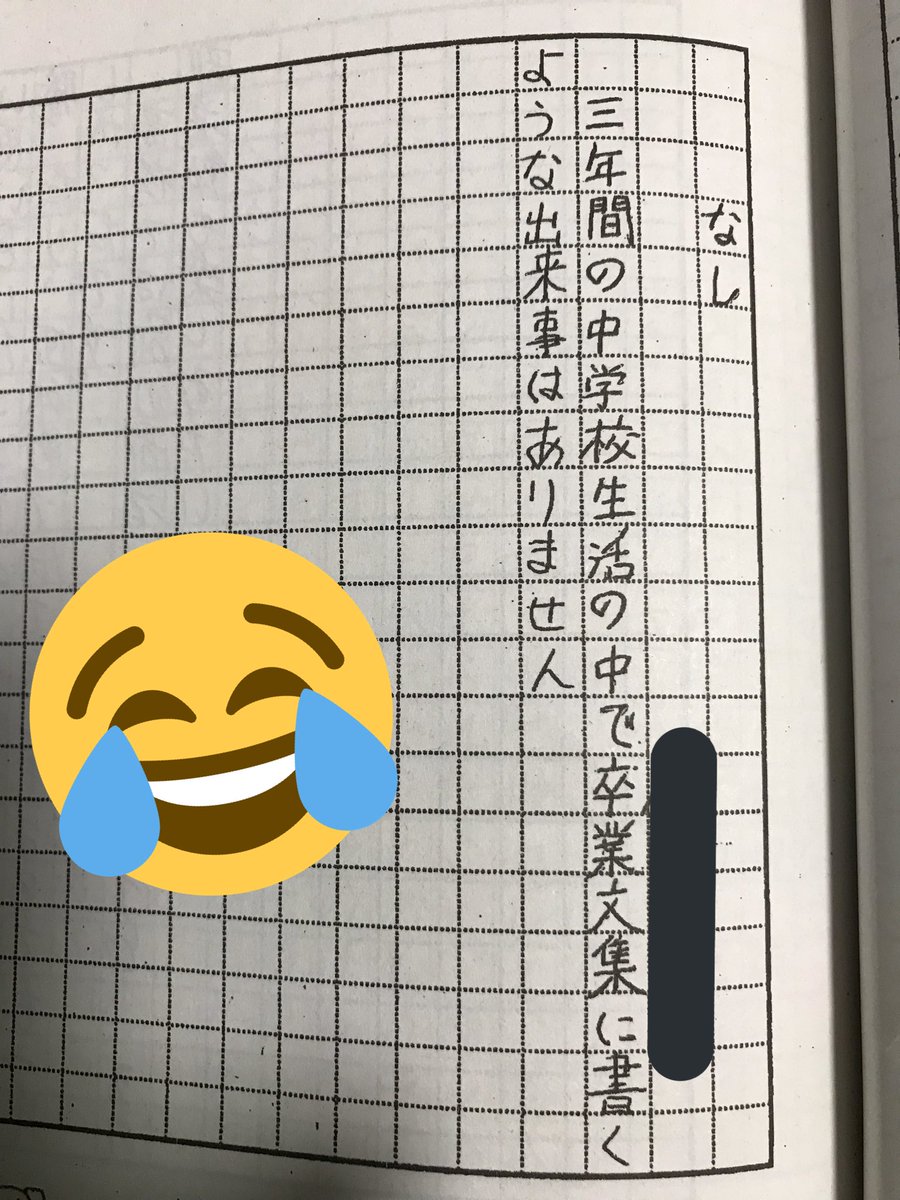 なし
三年間の中学校生活の中で卒業文集に書く
ような出来事はありません